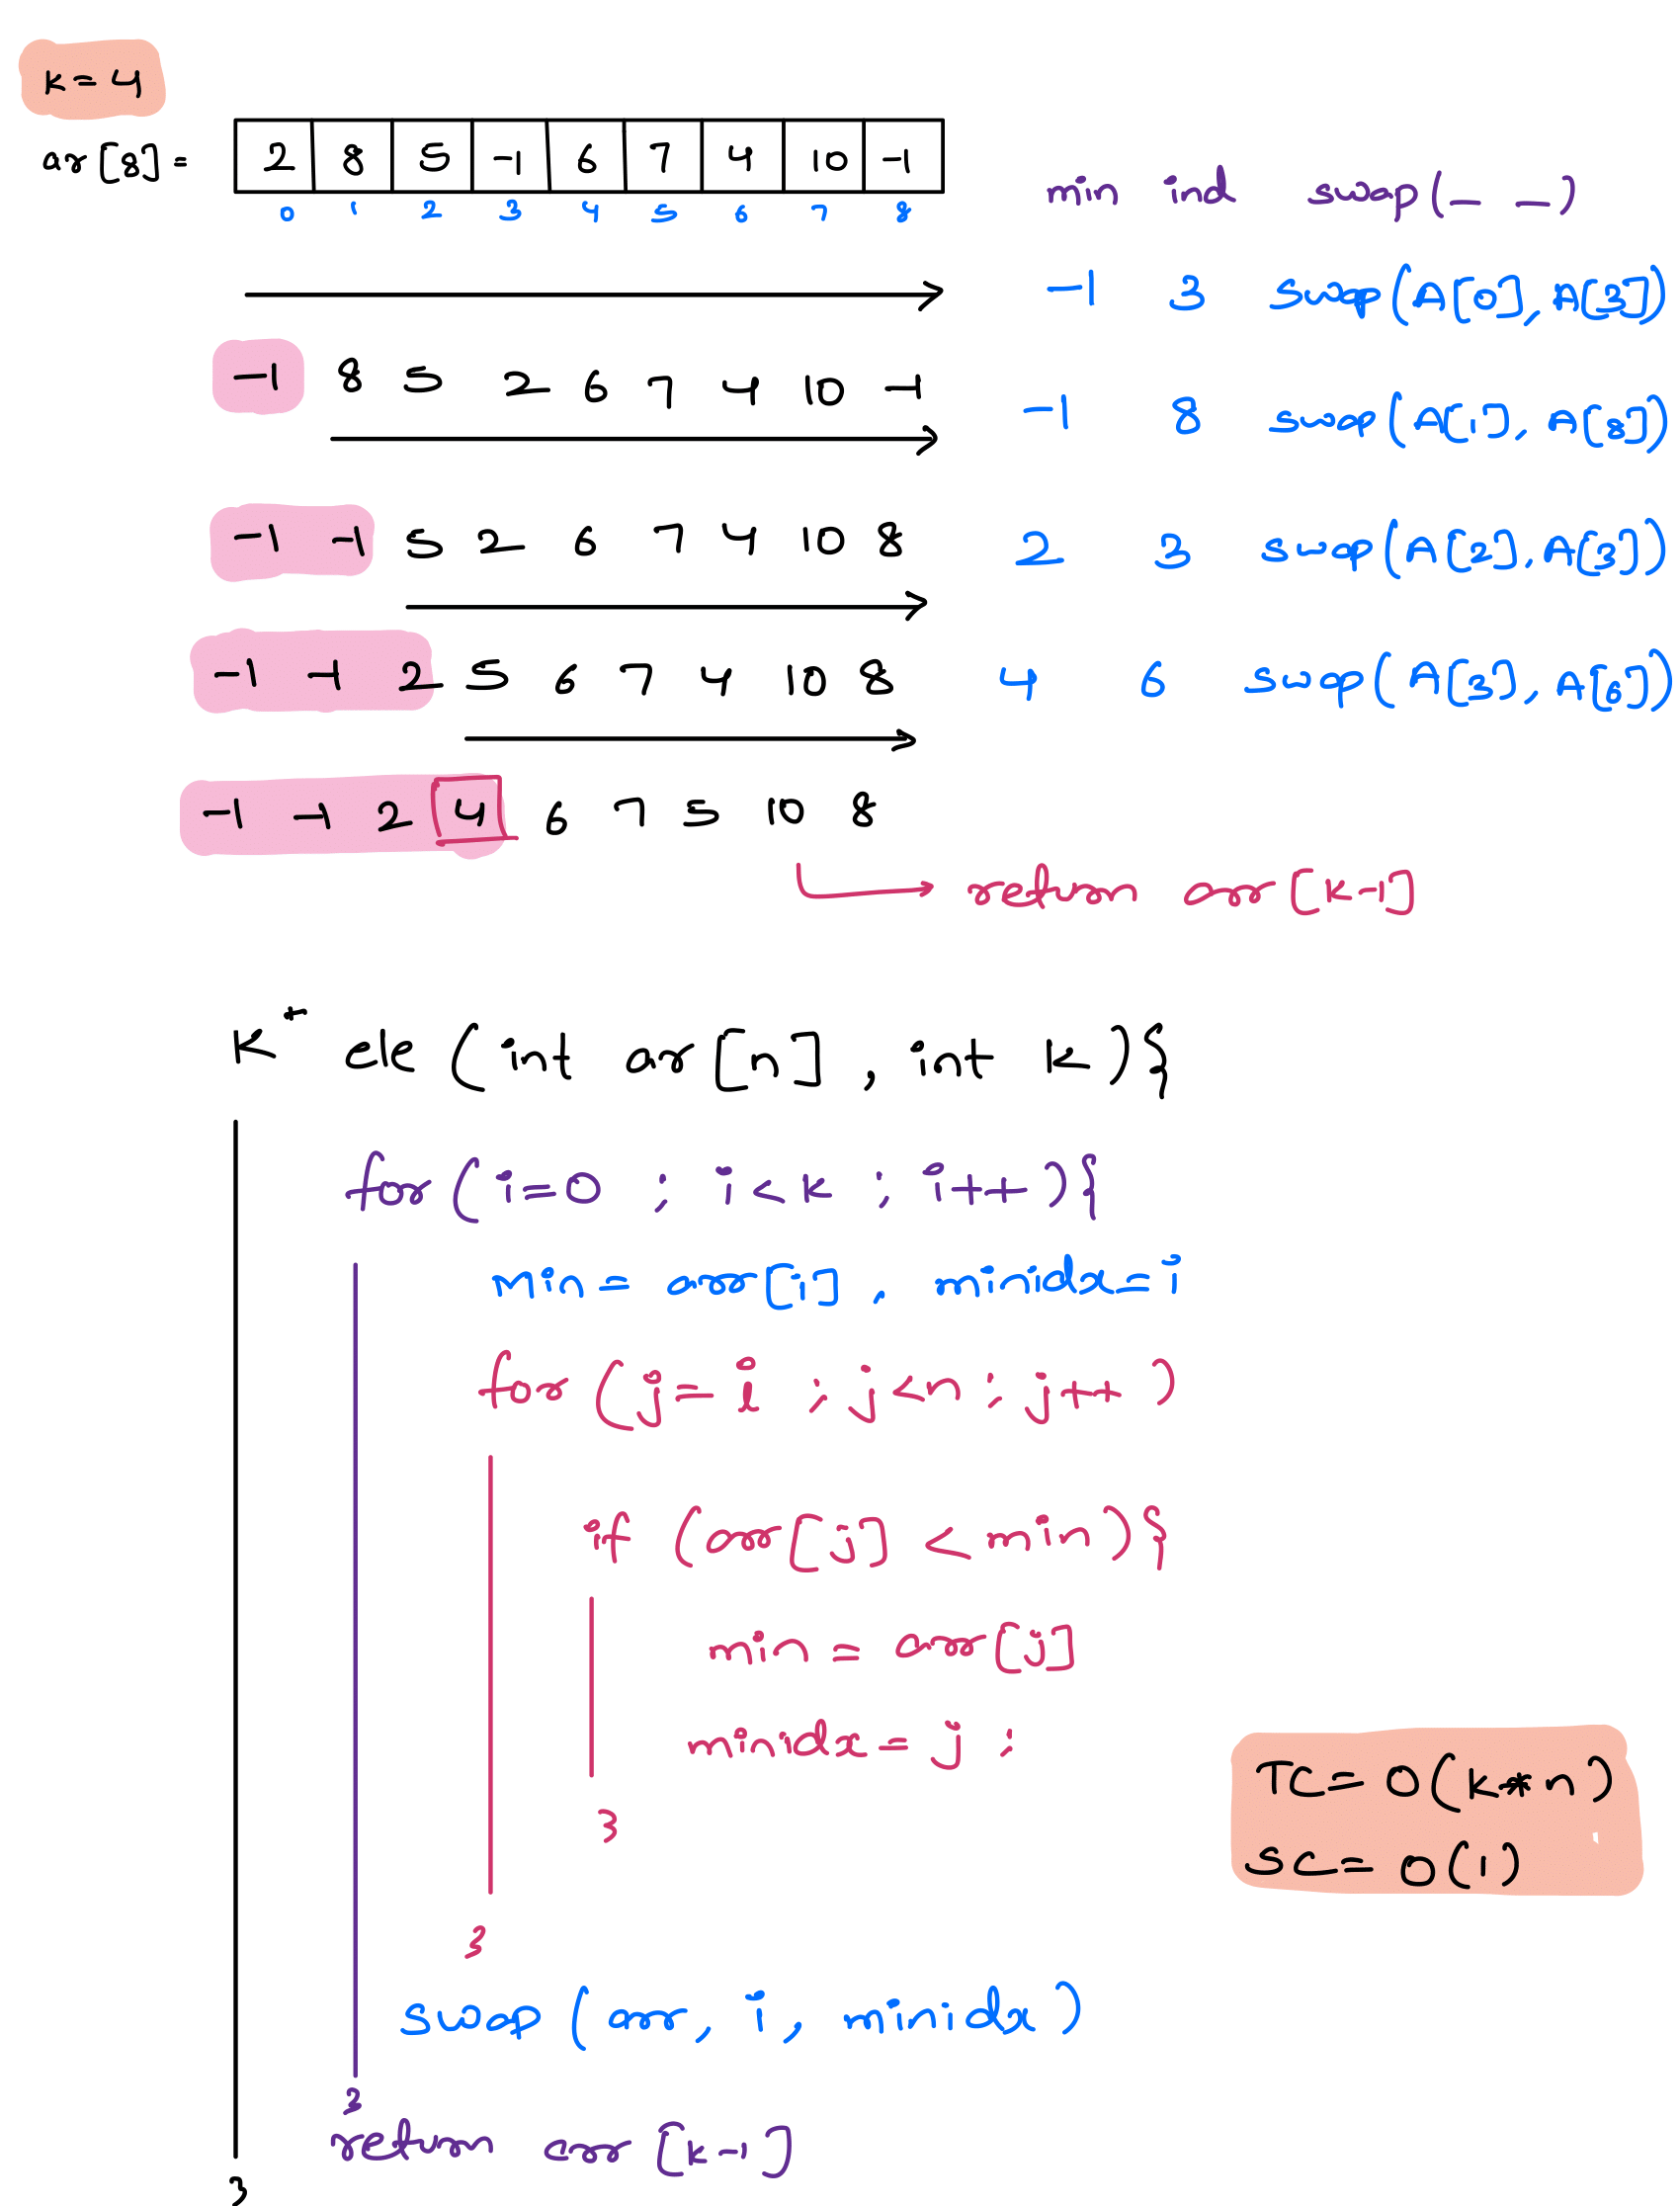 k = 4
ar[8] = 2 8 5 -1 6 7 4 10 -1
0 1 2 3 4 5 6 7 8
min ind swap(_ _)
-1 3 swap(A[0], A[3])
-1 8 5 2 6 7 4 10 -1
-1 8 swap(A[1], A[8])
-1 -1 5 2 6 7 4 10 8
2 3 swap(A[2], A[3])
-1 -1 2 5 6 7 4 10 8
4 6 swap(A[3], A[6])
-1 -1 2 4 6 7 5 10 8
return arr[k-1]
K+ ele (int ar[n], int k){
for(i=0 ; i<k ; i++){
min = arr[i], minidx=i
for (j=i ; j<n ; j++)
if (arr[j] < min){
min = arr[j]
minidx = j ;
}
}
swap (arr, i, minidx)
}
return arr[k-1]
}
TC = O(k*n)
SC = O(1)